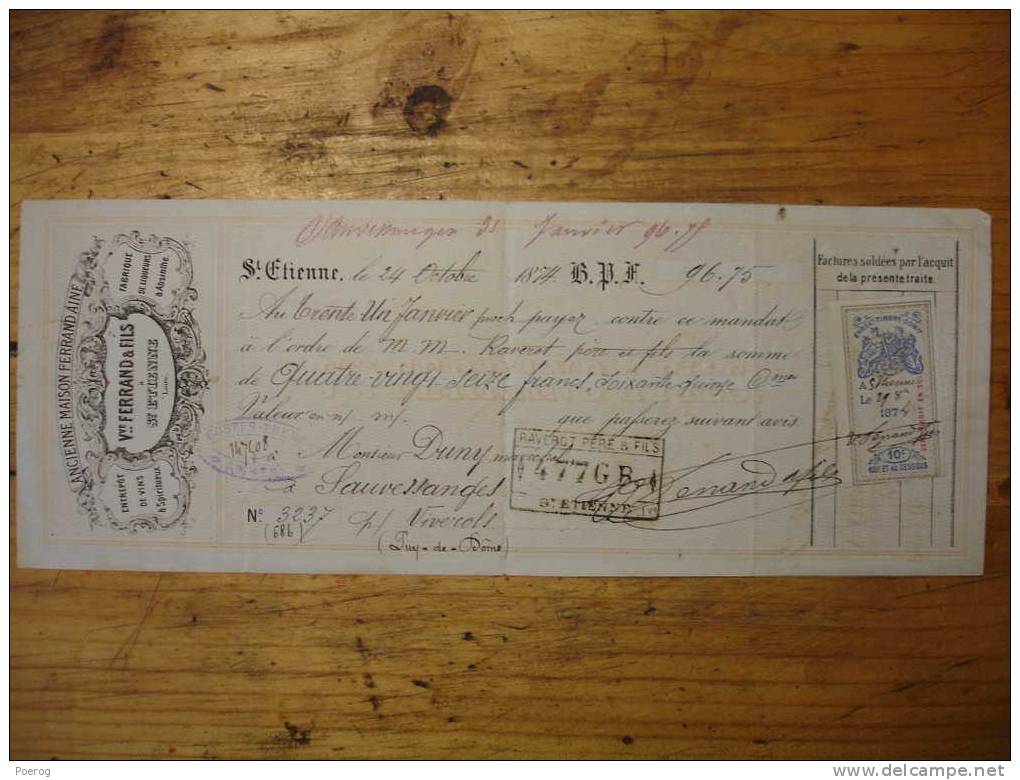 Sauvessanges 31 Janvier 96.75
St. Etienne, le 24 Octobre 1874. B.P.F. 96.75
Au Trente Un Janvier proch payez contre ce mandat
à l'ordre de M.M. Raverot père et fils la somme
de Quatre-vingt seize francs, soixante quinze Cmes
Valeur en n/ m/. que passerez suivant avis.
à Monsieur Duny marechal
à Sauvessanges
No. 3237 p/ Viverols
(686) (Puy-de-Dôme)
ANCIENNE MAISON FERRAND AINÉ
Vve FERRAND & FILS
à
St ETIENNE
Loire
FABRIQUE
DE LIQUEURS
& Absinthe.
ENTREPÔT
DE VINS
& Spiritueux
147608
RAVEROT PÈRE & FILS
477GB
St ETIENNE
Factures soldées par l'acquit
de la présente traite.
A St Etienne
Le
1874
10c
Poerog
delcampe.net